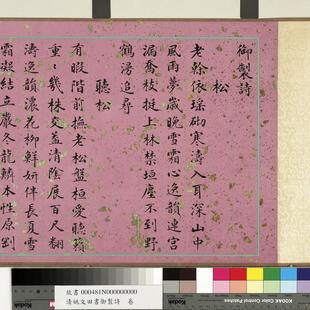 御製詩
松
老幹依瑤砌寒濤入耳深山中
風雨夢歲晚雪霜心逸韻連宮
漏喬枝挺上林禁垣塵不到野
鶴漫追尋
聽松
有暇階前撫老松盤桓愛聽籟
重重幾株交蓋清陰展百尺翻
濤逸韻濃花柳鮮妍伴長夏雪
霜凝結立嚴冬龍鱗本性原剛
故書 000481N000000000
清姚文田書御製詩 卷
KODAK Color Control Patches
KODAK